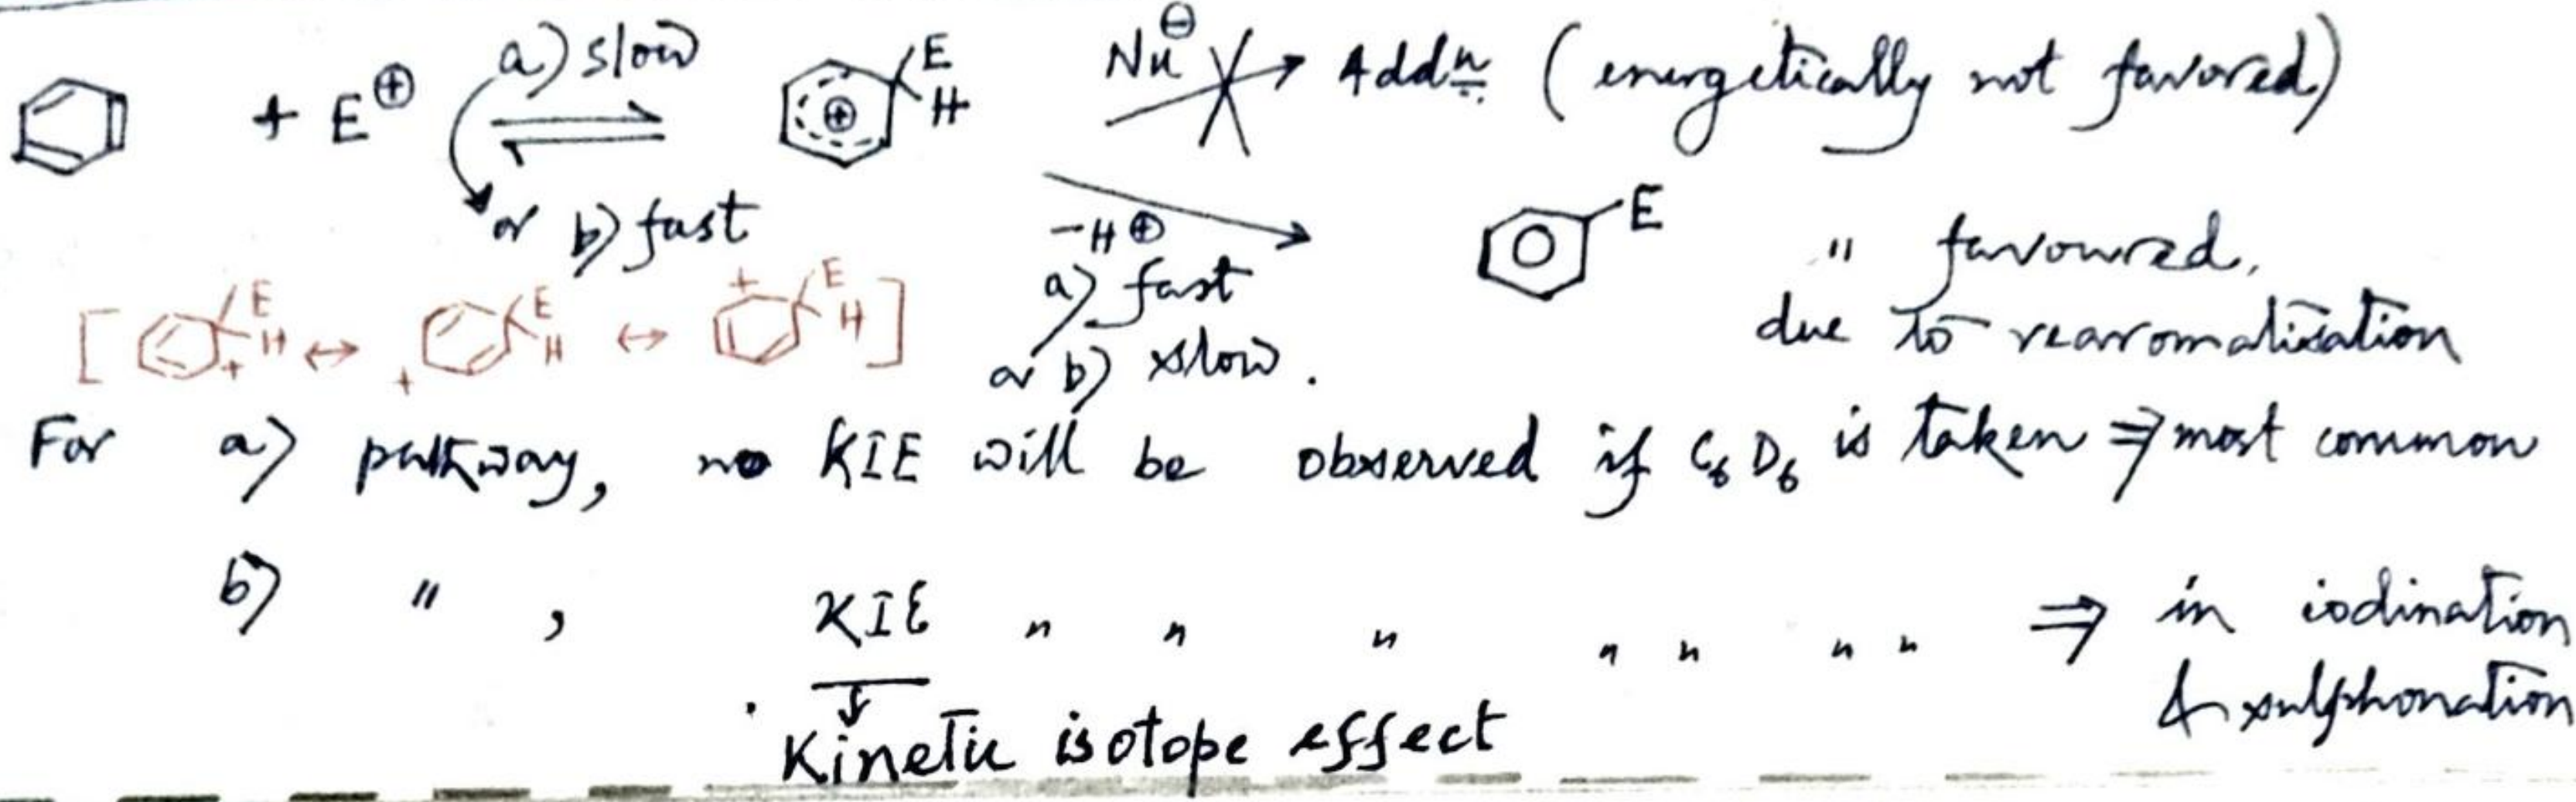 a) slow
+ E⊕ ⇌ E H ⊕ Nu⊖ → Addn (energetically not favored)
or b) fast
-H⊕ E " favoured,
a) fast due to rearomatization
or b) slow.
[ E H + ↔ E H + ↔ + E H ]
For a) pathway, no KIE will be observed if C6D6 is taken ⇒ most common
b) " , KIE " " " " " " " ⇒ in iodination
& sulphonation
↓
Kinetic isotope effect